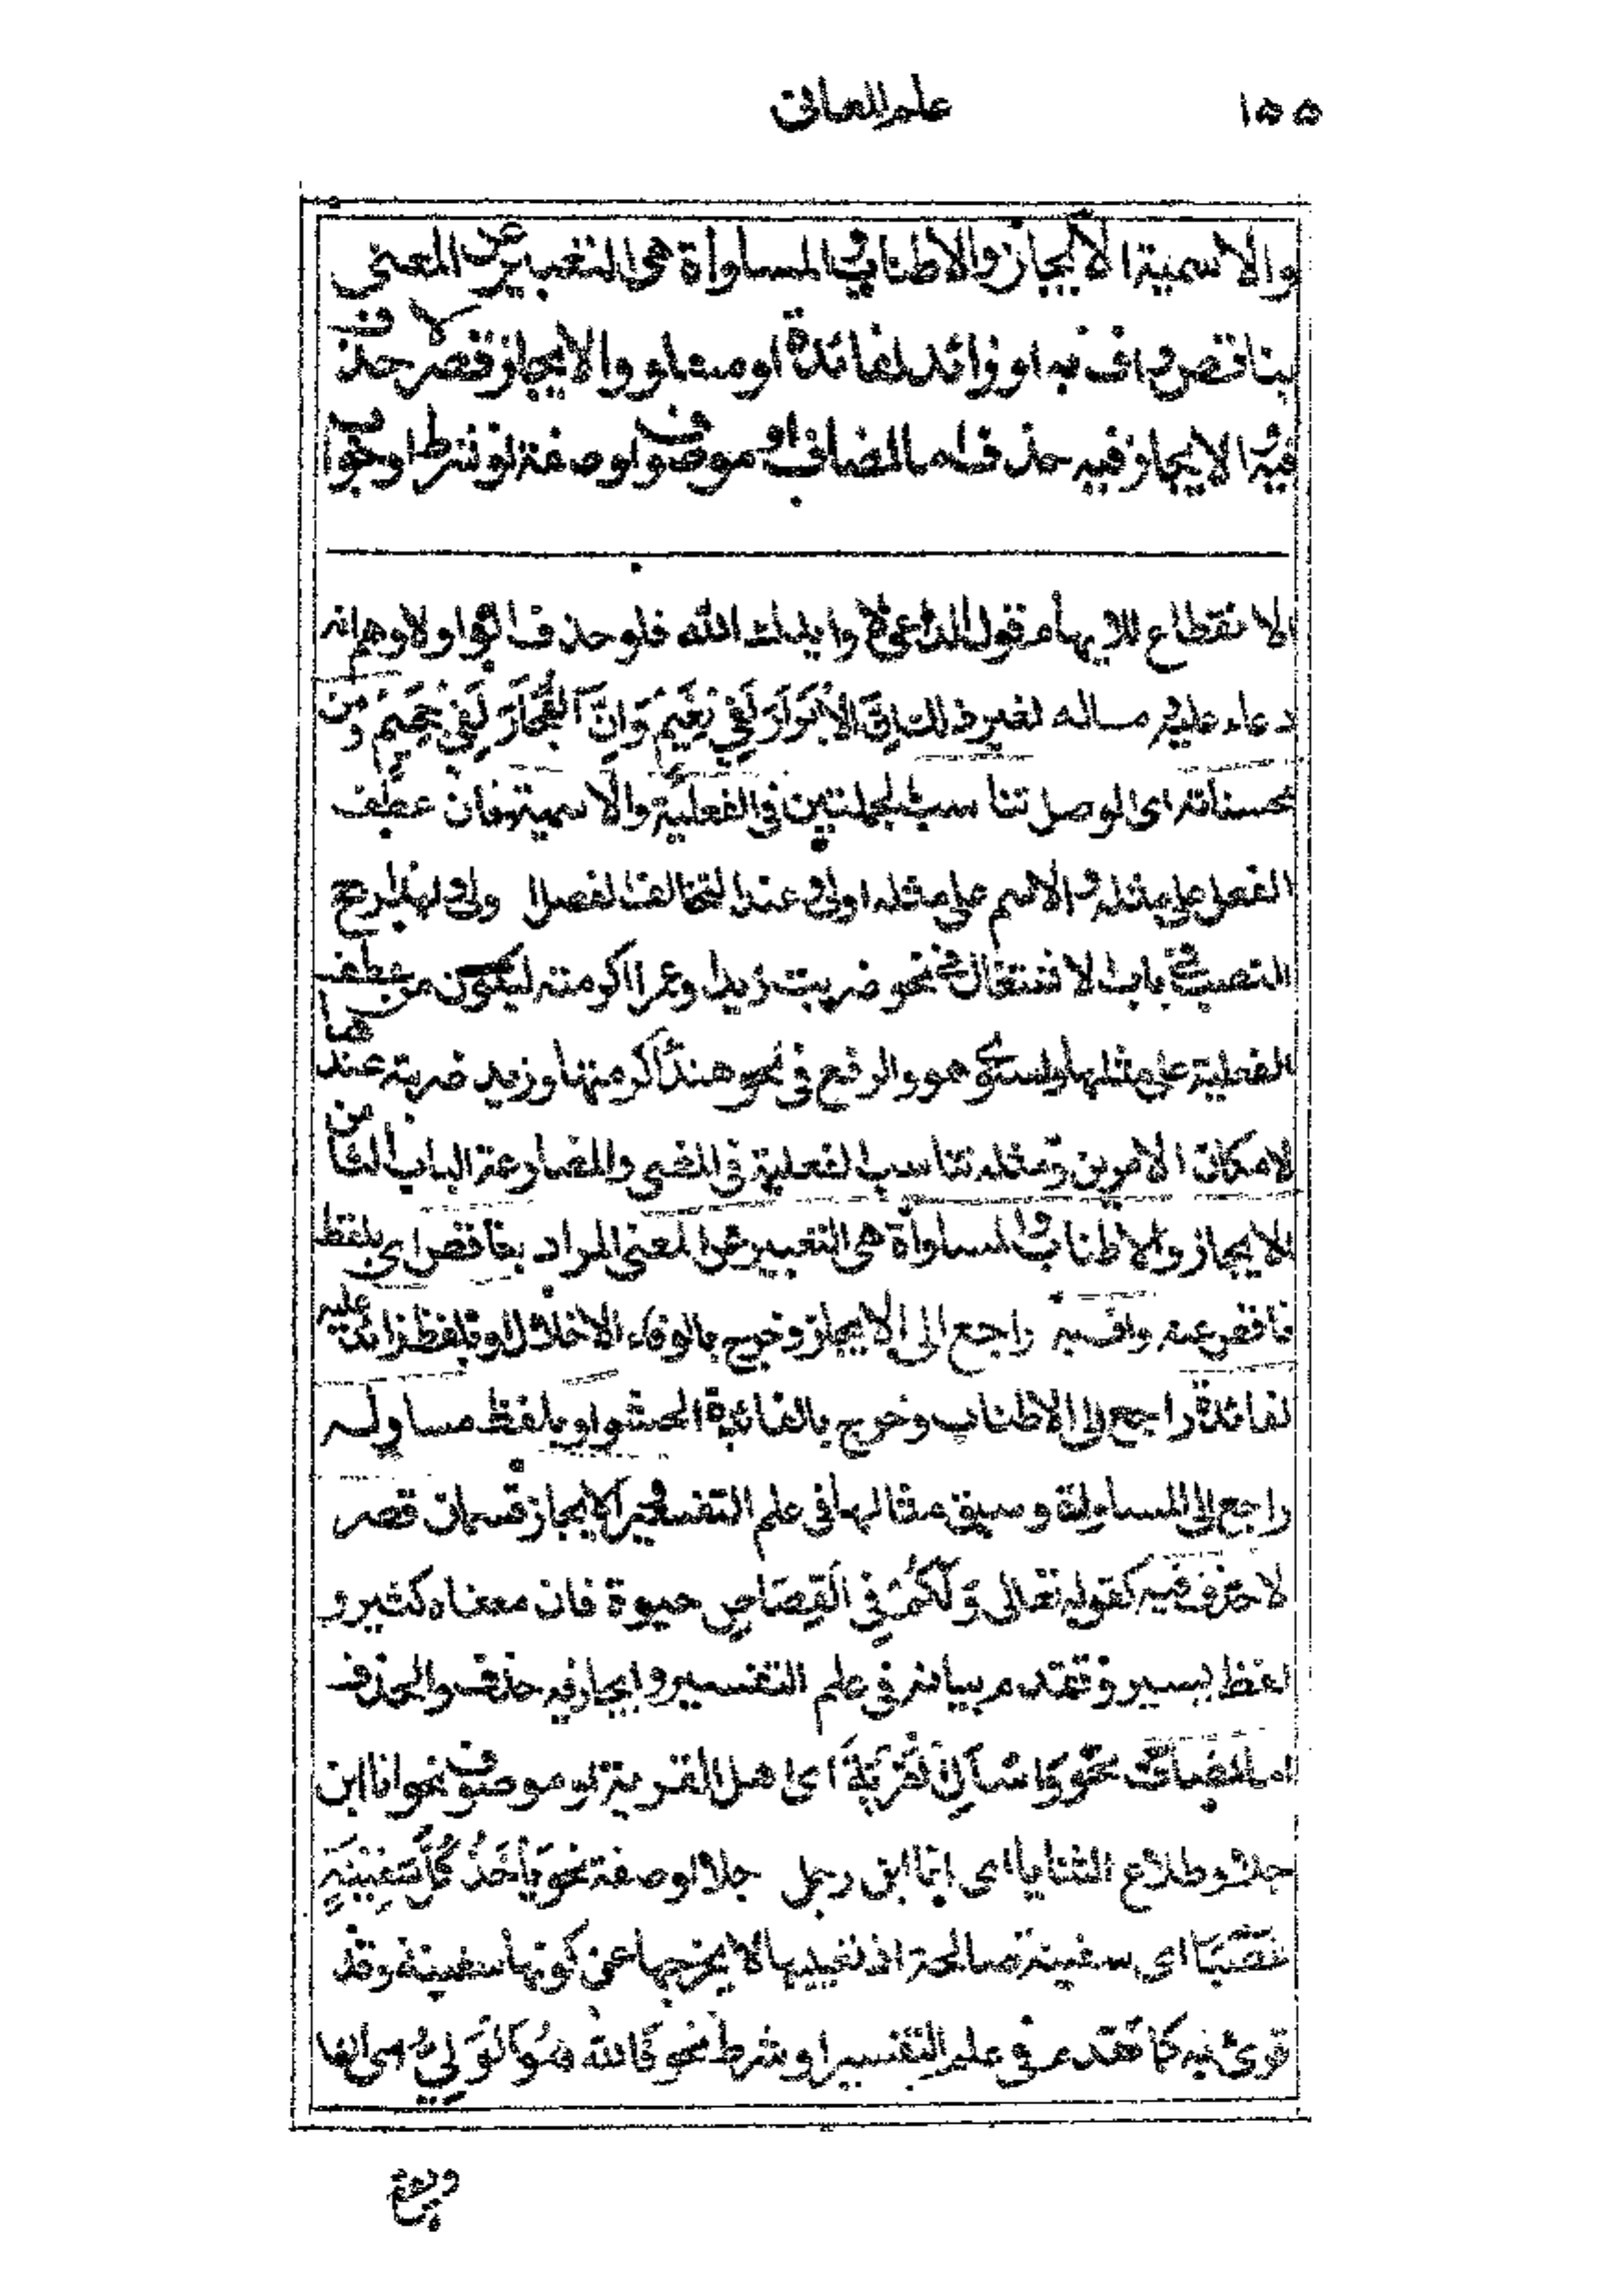 ١٥٥ علم المعانى
والاسمية الايجاز والاطناب والمساواة هى التعبير عن المعنى
بناقص واف به او زائد لفائدة او مساو والايجاز قصر لا حذف
فيه وايجاز فيه حذف اما المضاف او موصوف او صفة او شرط او جواب
الانقطاع للايهام كقول الداعى لا وايدك الله فلو حذف الواو لاوهم انه
دعاء عليه مثاله لغير ذلك اِنَّ الْاَبْرَارَ لَفِىْ نَعِيْمٍ وَاِنَّ الْفُجَّارَ لَفِىْ جَحِيْمٍ ومن
محسناته اى الوصل تناسب الجملتين فى الفعلية والاسمية فان عطف
الفعل على مثله والاسم على مثله اولى عند التخالف الفصل اولى لهذا رجح
النصب فى باب الاشتغال فى نحو ضربت زيدا وعمرا اكرمته ليكون من عطف
الفعلية على مثلها واستوى هو والرفع فى نحو هند اكرمتها وزيد ضربته عندها
لامكان الامرين ومثله تناسب الفعلية فى المضى والمضارعة الباب الثامن
الايجاز والاطناب والمساواة هى التعبير عن المعنى المراد بناقص اى بلفظ
ناقص عنه واف به راجع الى الايجاز وخرج بالوفاء الاخلال او بلفظ زائد عليه
لفائدة راجع الى الاطناب وخرج بالفائدة الحشو او بلفظ مساو له
راجع الى المساواة وسبق مثالها فى علم التفسير والايجاز قسمان قصر
لا حذف فيه كقوله تعالى وَلَكُمْ فِى الْقِصَاصِ حيوة فان معناه كثير و
لفظ يسير وتقدم بيانه فى علم التفسير وايجاز فيه حذف والحذف
اما المضاف نحو وَاسْأَلِ الْقَرْيَةَ اى اهل القرية او موصوف نحو انا ابن
جلا وطلاع الثنايا اى انا ابن رجل جلا او صفة نحو يَأْخُذُ كُلَّ سَفِيْنَةٍ
غَصْبًا اى سفينة صالحة اذ تعييبها لا يخرجها عن كونها سفينة وقد
قرئ به كما تقدم فى علم التفسير او شرط نحو فَاللهُ هُوَ الْوَلِىُّ اى ان